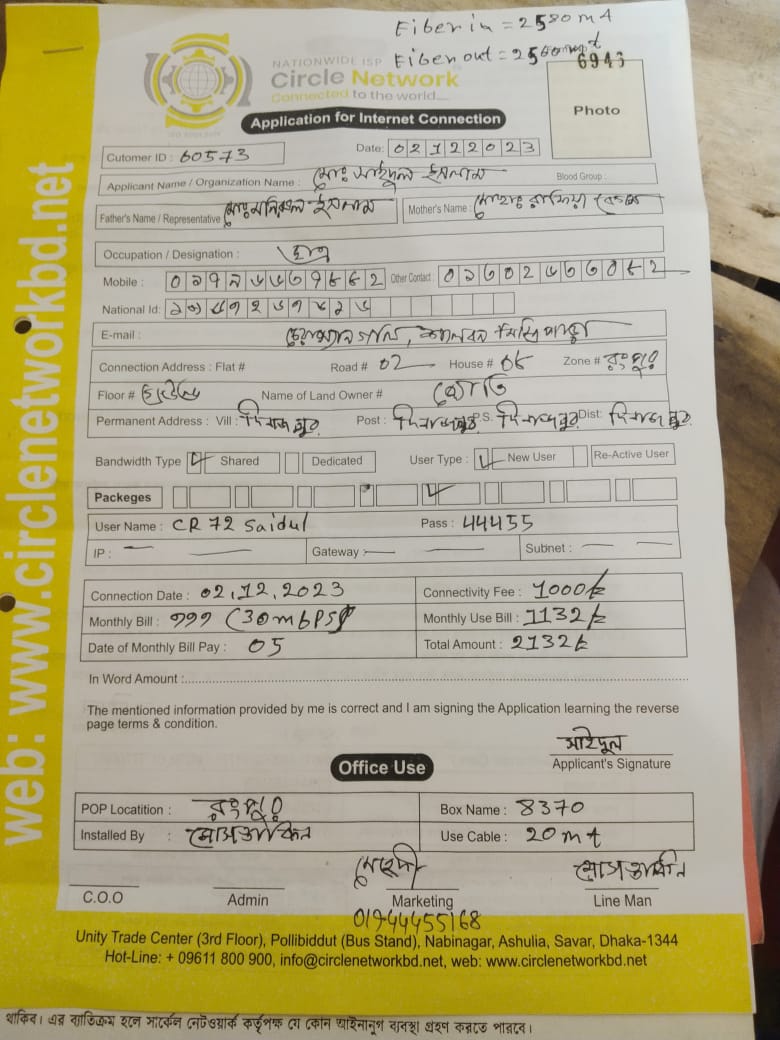 Fiber in = 2580 mt
Fiber out = 2560 mt
6943
NATIONWIDE ISP
Circle Network
Connected to the world....
Photo
Application for Internet Connection
Cutomer ID : 60573
Date: 02122023
Applicant Name / Organization Name : মোঃ সাইদুল ইসলাম
Blood Group :
Father's Name / Representative মোঃ মনিরুল ইসলাম
Mother's Name : মোছাঃ রাফিয়া বেগম
Occupation / Designation : ছাত্র
Mobile :
Other Contact :
National Id:
E-mail :
Connection Address : Flat # Road # 02 House # 06 Zone # রংপুর
Floor # Name of Land Owner #
Permanent Address : Vill : দিনাজপুর Post : দিনাজপুর P.S: দিনাজপুর Dist: দিনাজপুর
Bandwidth Type Shared Dedicated User Type : New User Re-Active User
Packeges
User Name : CR72 Saidul Pass : 44455
IP : Gateway : Subnet :
Connection Date : 02.12.2023 Connectivity Fee : 1000/=
Monthly Bill : 999 (30mbps) Monthly Use Bill : 1132/=
Date of Monthly Bill Pay : 05 Total Amount : 2132/=
In Word Amount :
The mentioned information provided by me is correct and I am signing the Application learning the reverse
page terms & condition.
সাইদুল
Applicant's Signature
Office Use
POP Locatition : রংপুর Box Name : 8370
Installed By : মোসতাকিন Use Cable : 20 mt
মেহেদী মোসতাকিন
C.O.O Admin Marketing Line Man
01744455168
Unity Trade Center (3rd Floor), Pollibiddut (Bus Stand), Nabinagar, Ashulia, Savar, Dhaka-1344
Hot-Line: + 09611 800 900, info@circlenetworkbd.net, web: www.circlenetworkbd.net
web: www.circlenetworkbd.net
থাকিব। এর ব্যতিক্রম হলে সার্কেল নেটওয়ার্ক কর্তৃপক্ষ যে কোন আইনানুগ ব্যবস্থা গ্রহণ করতে পারবে।